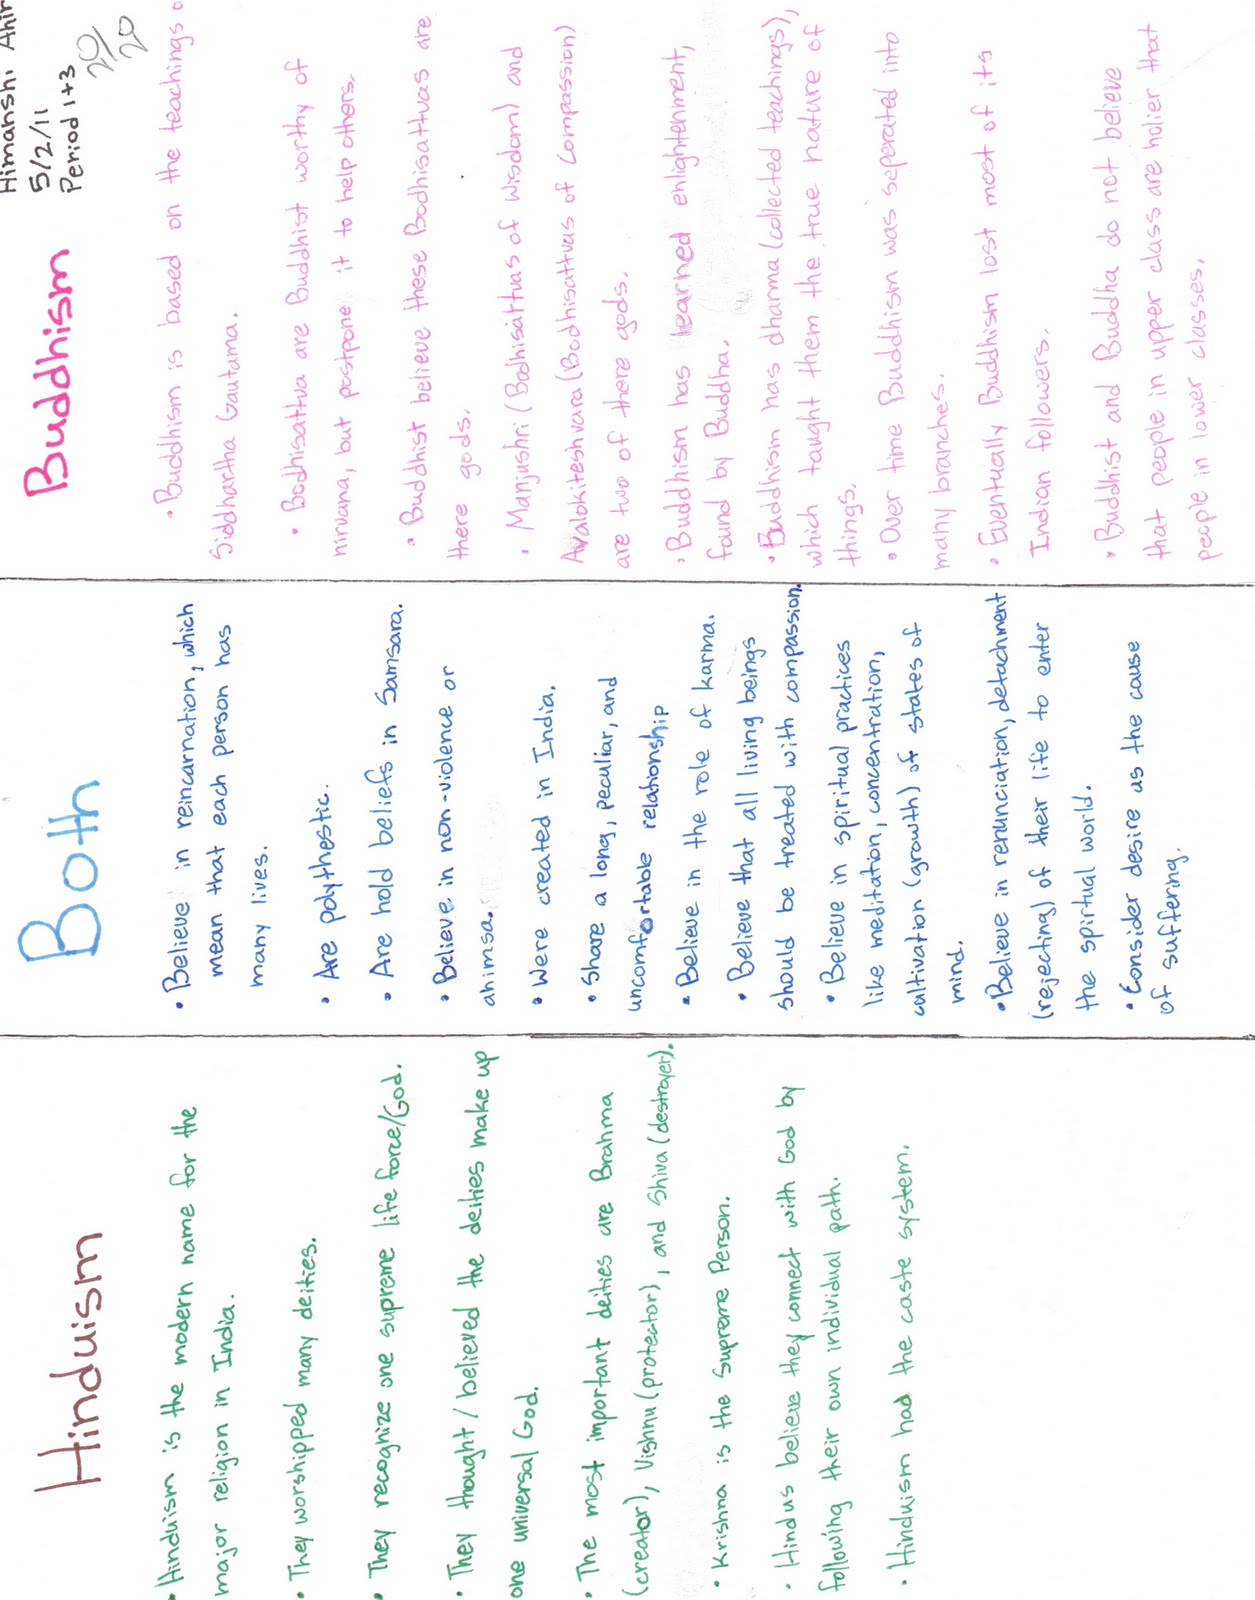 Himanshi Ahir
5/2/11
Period 1+3
20/20
Hinduism
• Hinduism is the modern name for the
major religion in India.
• They worshipped many deities.
• They recognize one supreme life force/God.
• They thought / believed the deities make up
one universal God.
• The most important deities are Brahma
(creator), Vishnu (protector), and Shiva (destroyer).
• Krishna is the Supreme Person.
• Hindus believe they connect with God by
following their own individual path.
• Hinduism had the caste system.
Both
• Believe in reincarnation, which
mean that each person has
many lives.
• Are polythestic.
• Are hold beliefs in Samsara.
• Believe in non-violence or
ahimsa.
• Were created in India.
• Share a long, peculiar, and
uncomfortable relationship
• Believe in the role of karma.
• Believe that all living beings
should be treated with compassion.
• Believe in spiritual practices
like meditation, concentration,
cultivation (growth) of states of
mind.
• Believe in renunciation, detachment
(rejecting) of their life to enter
the spirtual world.
• Consider desire as the cause
of suffering.
Buddhism
• Buddhism is based on the teachings o
Siddhartha Gautama.
• Bodhisattva are Buddhist worthy of
nirvana, but postpone it to help others.
• Buddhist believe these Bodhisattvas are
there gods.
• Manjushri (Bodhisattvas of Wisdom) and
Avalokiteshvara (Bodhisattvas of Compassion)
are two of there gods.
• Buddhism has learned enlightenment,
found by Buddha.
• Buddhism has dharma (collected teachings),
which taught them the true nature of
things.
• Over time Buddhism was seperated into
many branches.
• Eventually Buddhism lost most of its
Indian followers.
• Buddhist and Buddha do not believe
that people in upper class are holier that
people in lower classes.